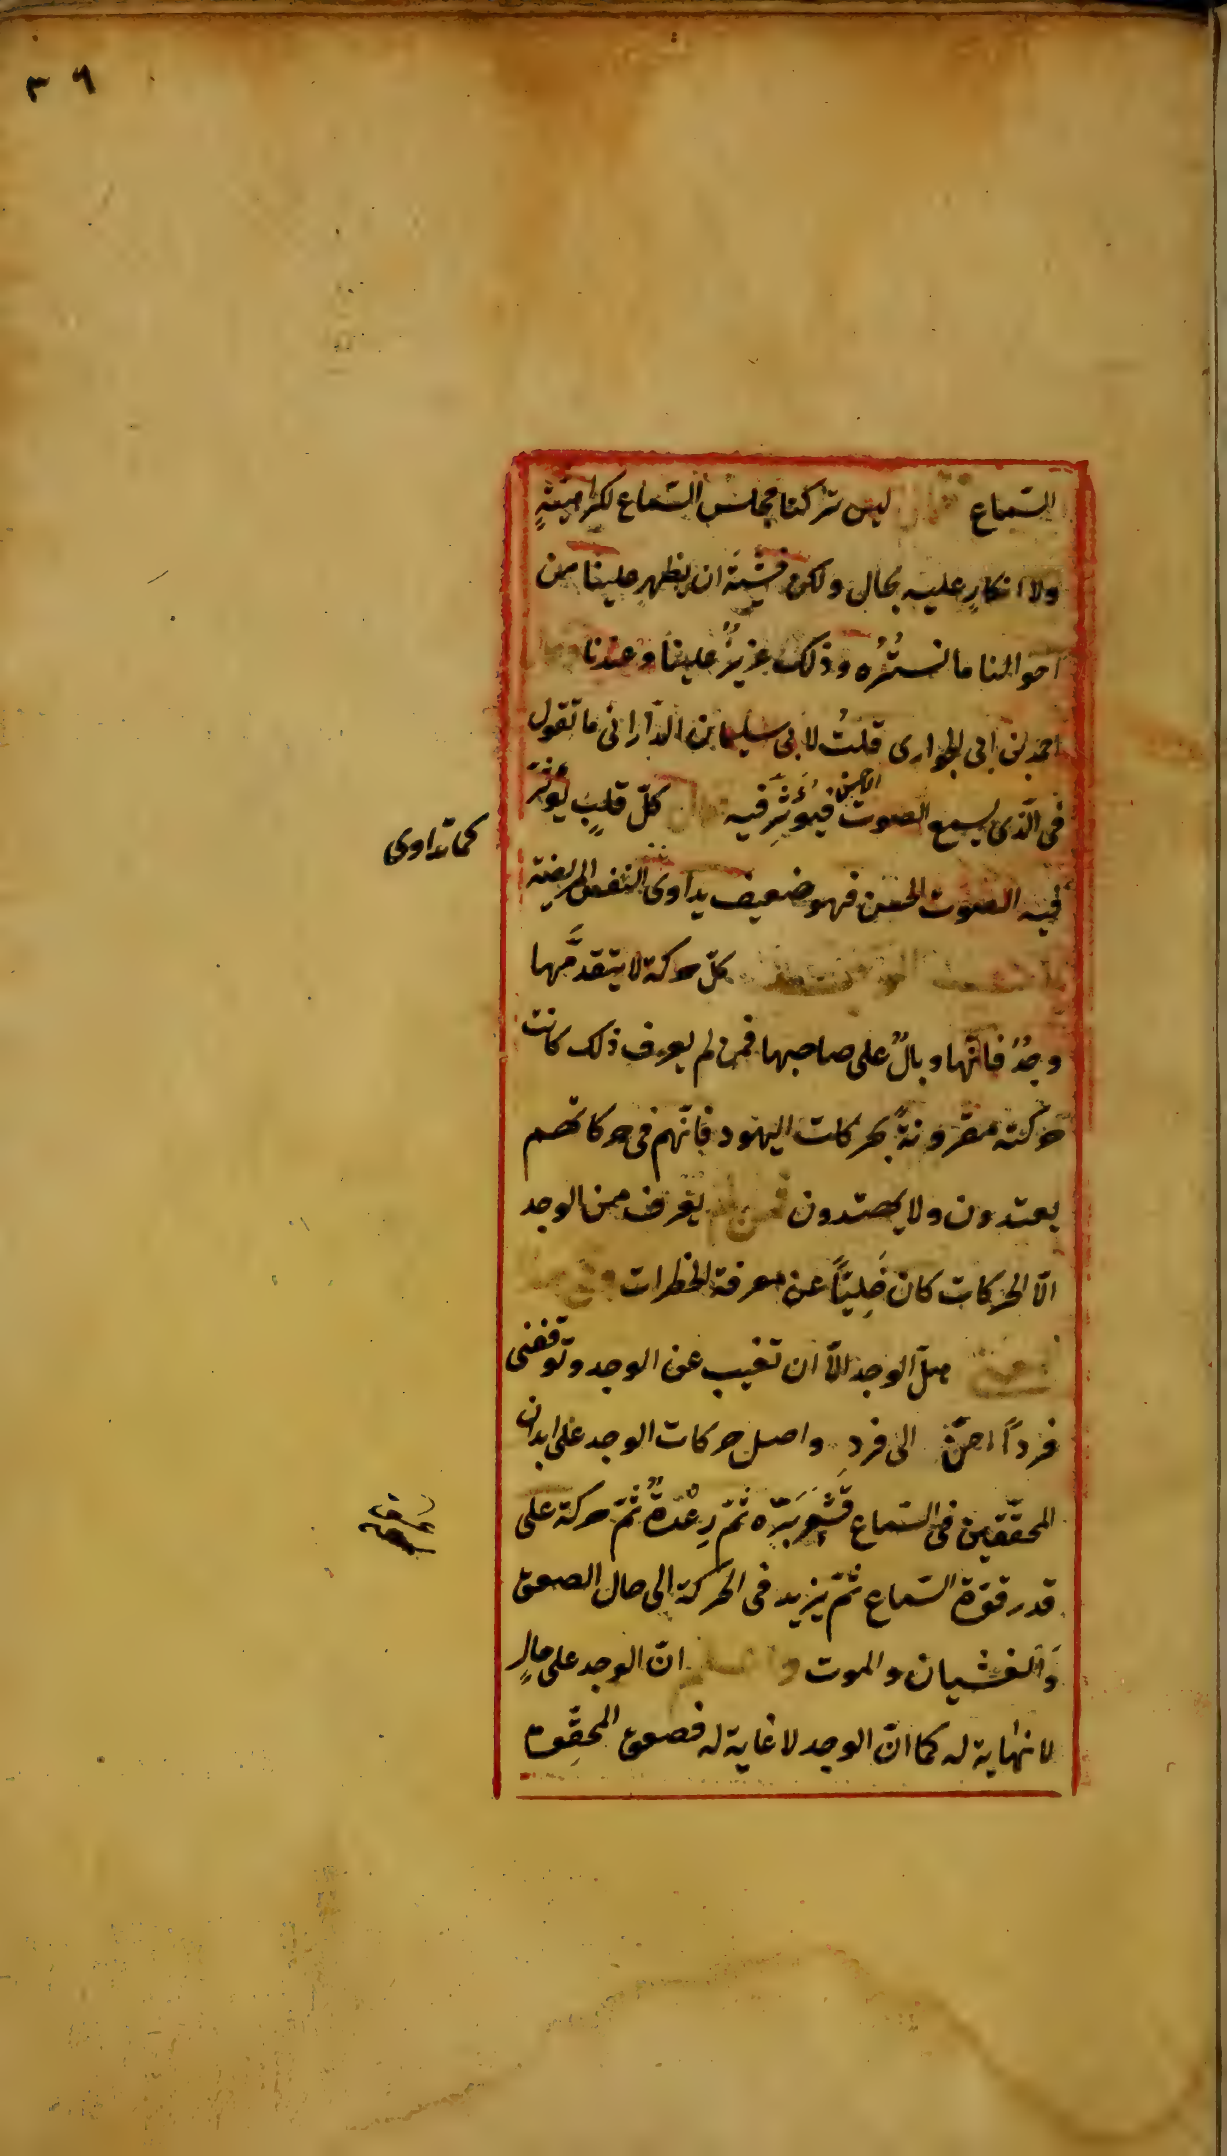 ٣٩
السّماع فقال ليس تركنا مجالس السّماع لكراهيّةٍ
ولا انكارٍ عليه بحال ولكن خشية ان يظهر علينا من
احوالنا ما نستُرُه وذلك عزيزٌ علينا وعندنا وقال
احمد بن ابى الحوارى قلتُ لابى سليمان الدّارانى ما تقول
فى الّذى يسمع الصوت الحسن فيُؤَثِّر فيه قال كلّ قلبٍ يؤثّر
فيه الصوت الحسن فهو ضعيف يداوى النفس المريضة
كما تداوى
كلّ حركة لا يتقدّمها
وجدٌ فانّها وبالٌ على صاحبها فمن لم يعرف ذلك كانت
حركته مقرونةً بحركات اليهود فانّهم فى حركاتهم
يعتدون ولا يهتدون فمن لم يعرف من الوجد
الّا الحركات كان خَلِيّاً عن معرفة الخطرات
الوجد الّا ان تغيب عن الوجد وتوقفنى
فرداً الى فردٍ واصل حركات الوجد على ابدان
المحقّقين فى السّماع قشعريرة ثمّ رِعْدةٌ ثمّ حركة على
قدر قوّة السّماع ثمّ يزيد فى الحركة الى حال الصعق
وَالغشيان والموت واعلم انّ الوجد على حالٍ
لا نهاية له كما انّ الوجد لا غاية له فصعق المحقِّق